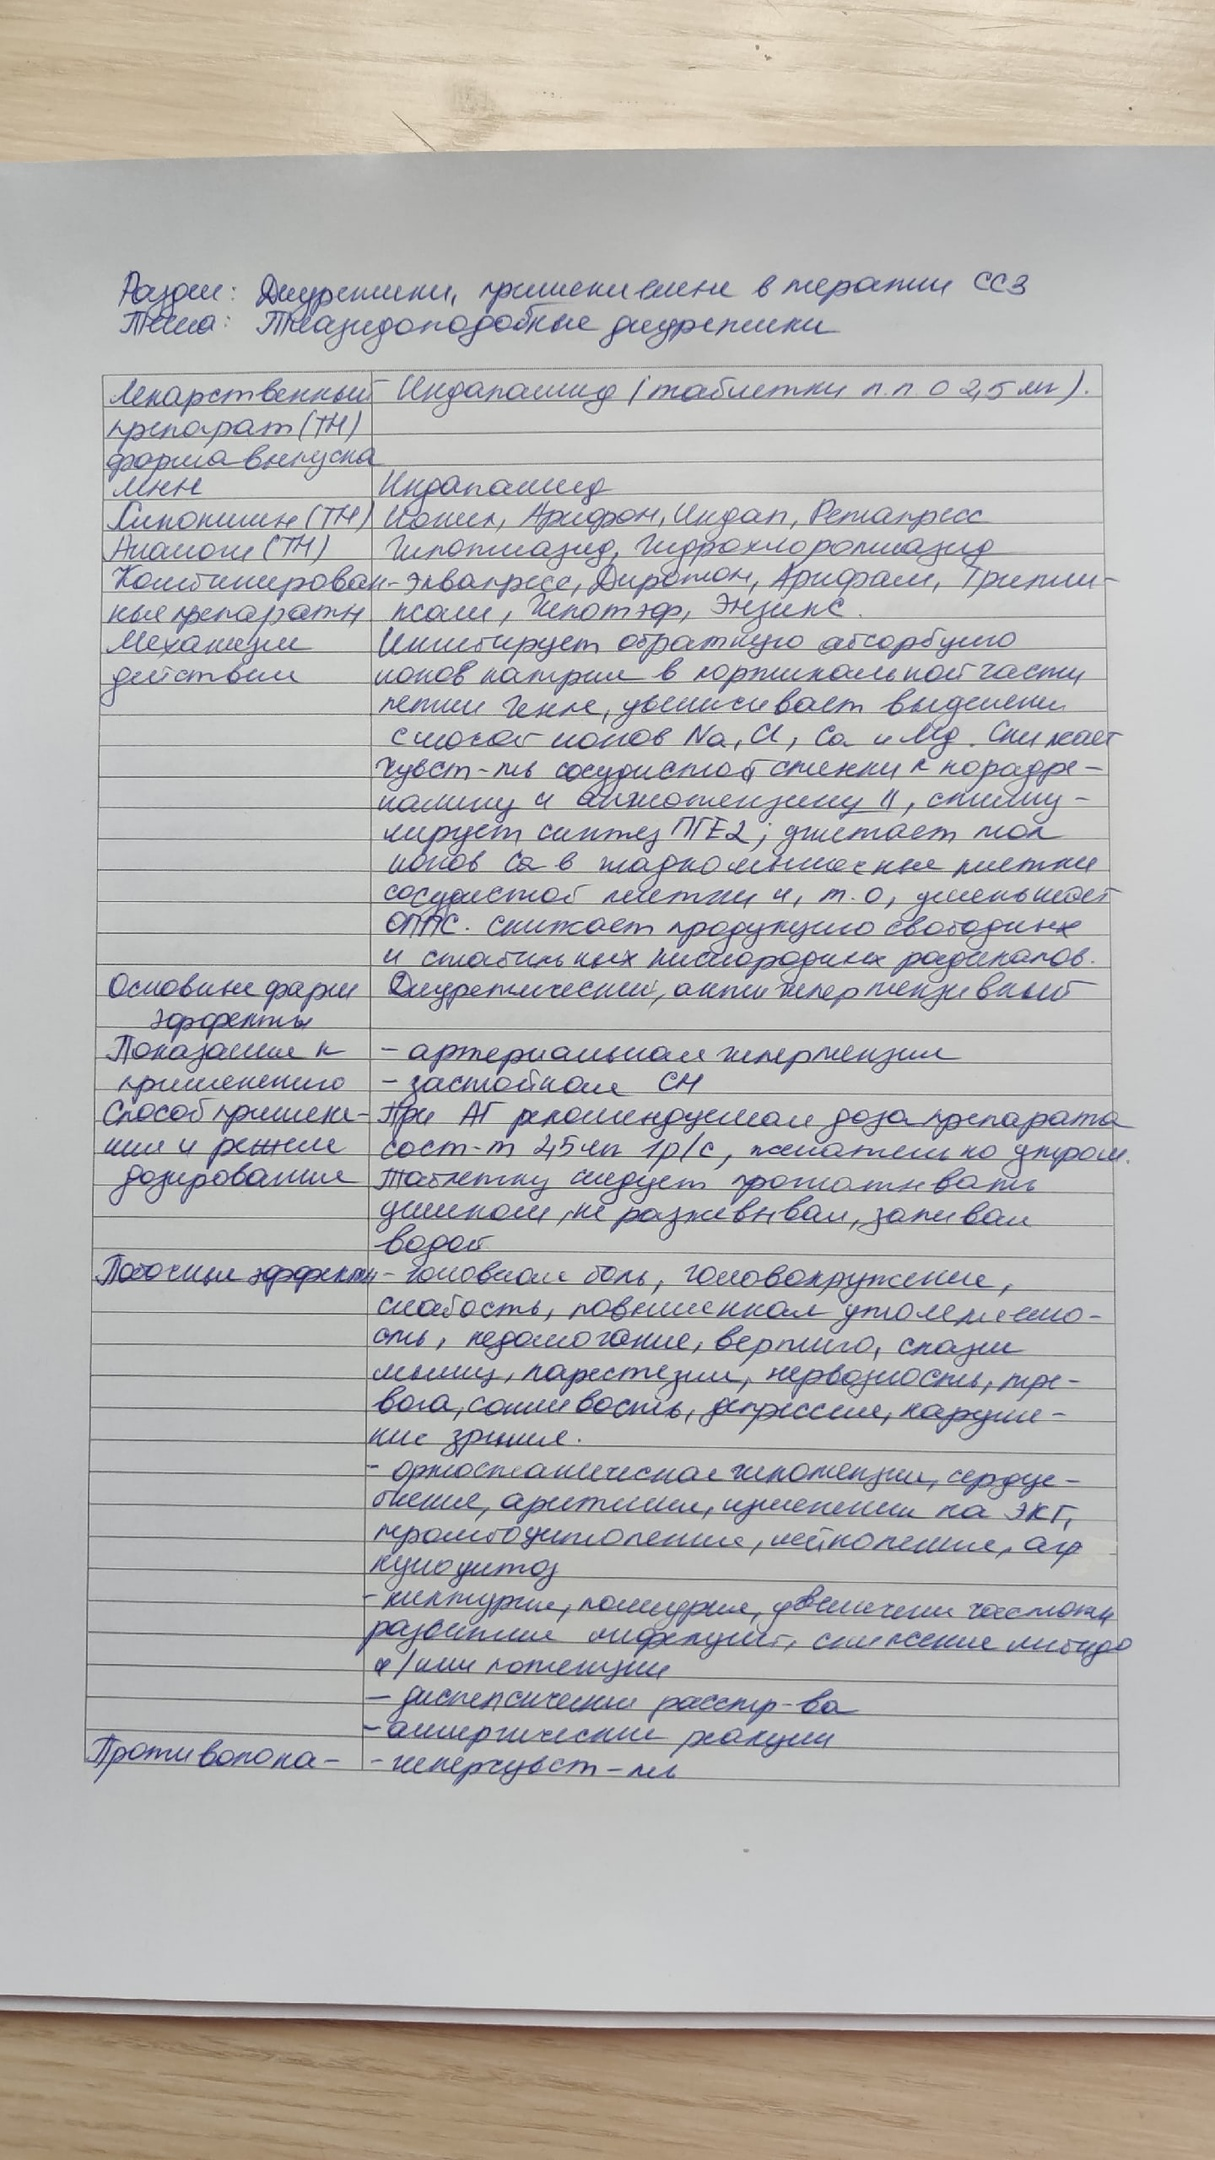 Раздел: Диуретики, применяемые в терапии ССЗ
Тема: Тиазидоподобные диуретики
Лекарственный Индапамид (таблетки п.п.о 2,5 мг).
препарат (ТН)
форма выпуска
МНН Индапамид
Синонимы (ТН) Ионик, Арифон, Индап, Ретапресс
Аналоги (ТН) Гипотиазид, Гидрохлоротиазид
Комбинирован- Эквапресс, Диротон, Арифам, Трипли-
ные препараты ксам, Гипотэф, Энзикс.
Механизм Ингибирует обратную абсорбцию
действия ионов натрия в кортикальной части
петли Генле, увеличивает выделение
с мочой ионов Na, Cl, Ca и Mg. Снижает
чувст-ть сосудистой стенки к норадре-
налину и ангиотензину II, стиму-
лирует синтез ПГЕ2; угнетает ток
ионов Ca в гладкомышечные клетки
сосудистой клетки и, т.о, уменьшает
ОППС. Снижает продукцию свободных
и стабильных кислородных радикалов.
Основные фарм Диуретический, антигипертензивный
эффекты
Показания к - артериальная гипертензия
применению - застойная СН
Способ примене- При АГ рекомендуемая доза препарата
ния и режим сост-т 2,5 мг 1р/с, желательно утром.
дозирования Таблетку следует проглатывать
целиком, не разжевывая, запивая
водой
Побочные эффекты - головная боль, головокружение,
слабость, повышенная утомляемо-
сть, недомогание, вертиго, спазм
мышц, парестезии, нервозность, тре-
вога, сонливость, депрессия, наруше-
ние зрения.
- ортостатическая гипотензия, сердце-
биение, аритмия, изменения на ЭКГ,
тромбоцитопения, лейкопения, агр
нулоцитоз
- никтурия, полиурия, увеличение частоты
развития инфекций, снижение либидо
и/или потенции
- диспепсические расстр-ва
- аллергические реакции
Противопока- - гиперчувст-ть